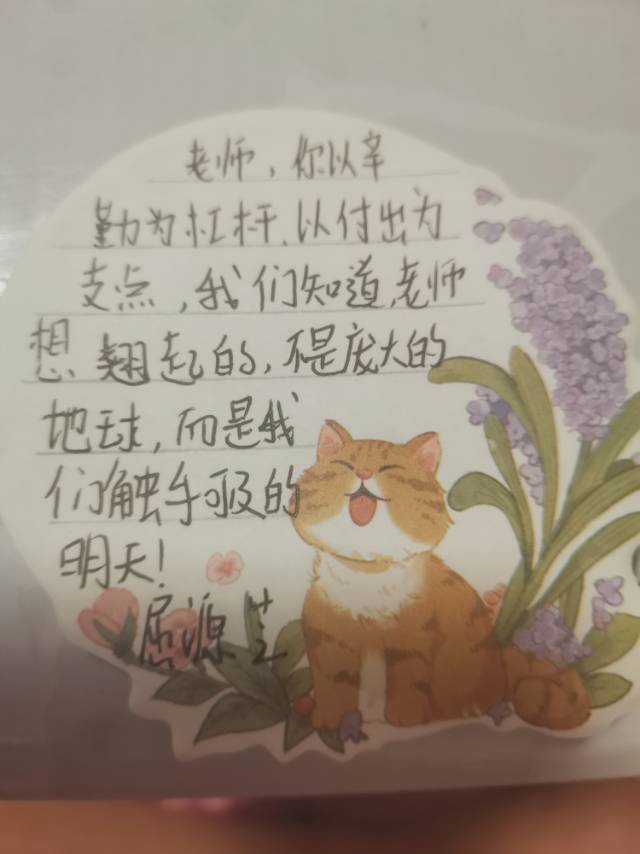 老师，你以辛
勤为杠杆、以付出为
支点，我们知道，老师
想翘起的，不是庞大的
地球，而是我
们触手可及的
明天！
屈源芝